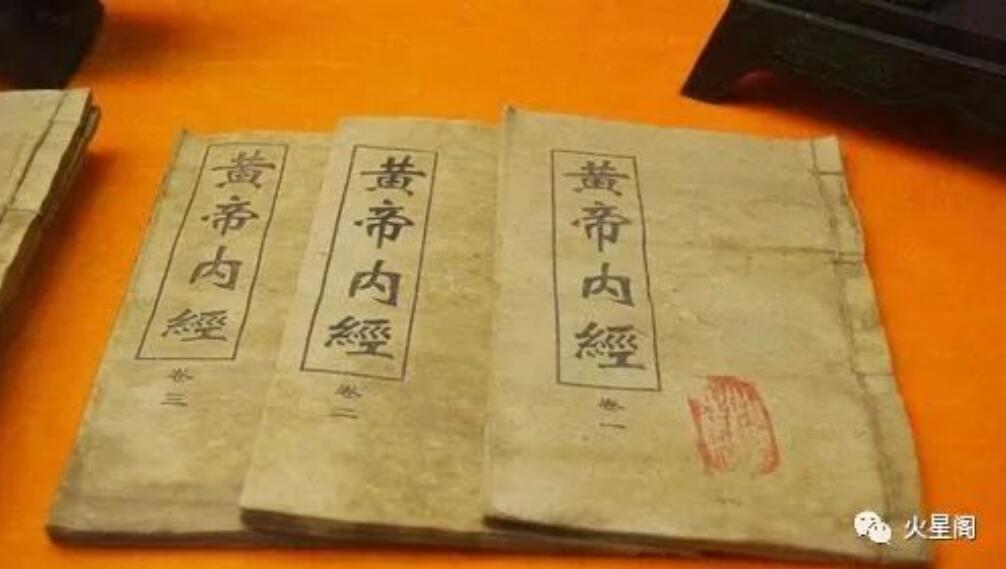 黄帝内經
卷一
黄帝内經
卷二
黄帝内經
卷三
火星阁